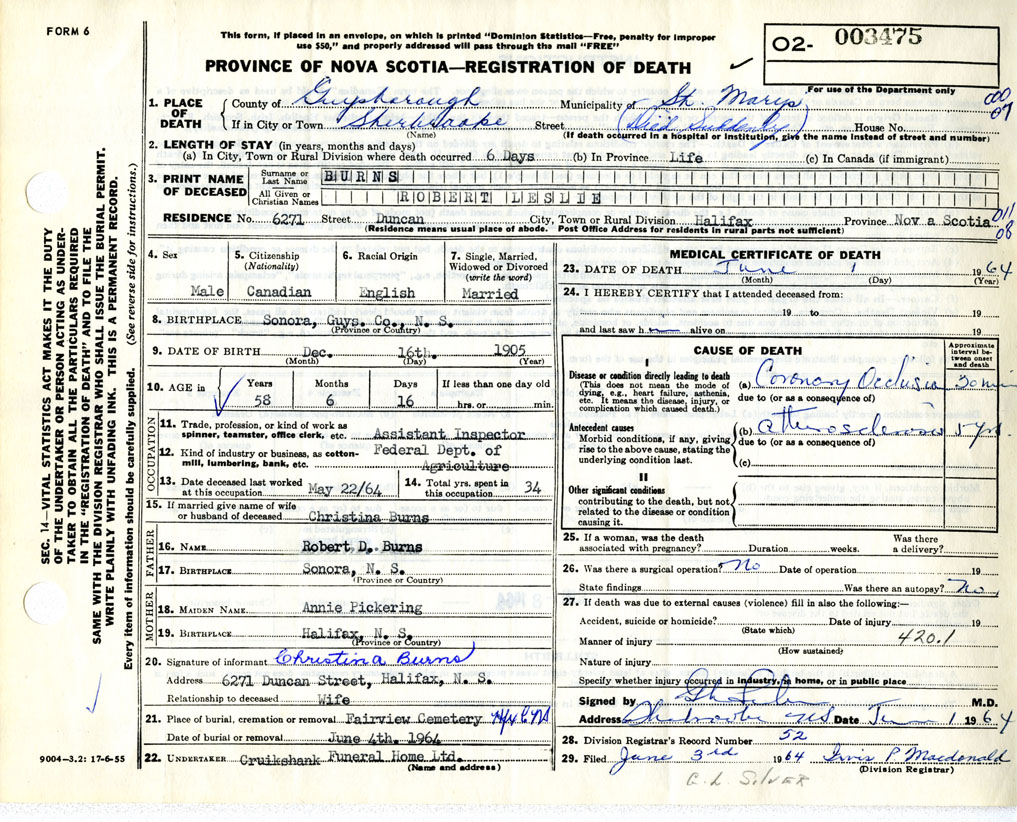 FORM 6
This form, if placed in an envelope, on which is printed "Dominion Statistics—Free, penalty for improper
use $50," and properly addressed will pass through the mail "FREE"
PROVINCE OF NOVA SCOTIA—REGISTRATION OF DEATH
02- 003475
For use of the Department only
1. PLACE OF DEATH
County of Guysborough Municipality of St. Marys
If in City or Town Sherbrooke Street (Died Suddenly) House No.
(Name) (If death occurred in a hospital or institution, give the name instead of street and number)
000
07
2. LENGTH OF STAY (in years, months and days)
(a) In City, Town or Rural Division where death occurred 6 Days (b) In Province Life (c) In Canada (if immigrant)
3. PRINT NAME OF DECEASED
Surname or Last Name BURNS
All Given or Christian Names ROBERT LESLIE
RESIDENCE No. 6271 Street Duncan City, Town or Rural Division Halifax Province Nova Scotia
(Residence means usual place of abode. Post Office Address for residents in rural parts not sufficient)
011
08
4. Sex
Male
5. Citizenship
(Nationality)
Canadian
6. Racial Origin
English
7. Single, Married,
Widowed or Divorced
(write the word)
Married
8. BIRTHPLACE Sonora, Guys. Co., N. S.
(Province or Country)
9. DATE OF BIRTH Dec. 16th. 1905
(Month) (Day) (Year)
10. AGE in
Years Months Days If less than one day old
58 6 16 hrs. or min.
OCCUPATION
11. Trade, profession, or kind of work as
spinner, teamster, office clerk, etc. Assistant Inspector
12. Kind of industry or business, as cotton-
mill, lumbering, bank, etc. Federal Dept. of
Agriculture
13. Date deceased last worked
at this occupation May 22/64
14. Total yrs. spent in
this occupation 34
15. If married give name of wife
or husband of deceased Christina Burns
FATHER
16. NAME Robert D. Burns
17. BIRTHPLACE Sonora, N. S.
(Province or Country)
MOTHER
18. MAIDEN NAME Annie Pickering
19. BIRTHPLACE Halifax, N. S.
(Province or Country)
20. Signature of informant Christina Burns
Address 6271 Duncan Street, Halifax, N. S.
Relationship to deceased Wife
21. Place of burial, cremation or removal Fairview Cemetery
Date of burial or removal June 4th. 1964
22. UNDERTAKER Cruikshank Funeral Home Ltd.
(Name and address)
MEDICAL CERTIFICATE OF DEATH
23. DATE OF DEATH June 1 1964
(Month) (Day) (Year)
24. I HEREBY CERTIFY that I attended deceased from:
19 to 19
and last saw h alive on 19
CAUSE OF DEATH
Approximate
interval be-
tween onset
and death
I
Disease or condition directly leading to death
(This does not mean the mode of
dying, e.g., heart failure, asthenia,
etc. It means the disease, injury, or
complication which caused death.)
(a) Coronary Occlusion 30 min
due to (or as a consequence of)
Antecedent causes
Morbid conditions, if any, giving
rise to the above cause, stating the
underlying condition last.
(b) atherosclerosis 5 yrs.
due to (or as a consequence of)
(c)
II
Other significant conditions
contributing to the death, but not
related to the disease or condition
causing it.
25. If a woman, was the death
associated with pregnancy? Duration weeks. Was there
a delivery?
26. Was there a surgical operation? No Date of operation 19
State findings Was there an autopsy? No
27. If death was due to external causes (violence) fill in also the following:—
Accident, suicide or homicide? Date of injury 19
(State which)
Manner of injury 420.1
(How sustained)
Nature of injury
Specify whether injury occurred in industry, in home, or in public place
Signed by M.D.
Address Sherbrooke NS Date June 1 1964
28. Division Registrar's Record Number 52
29. Filed June 3rd 1964 Irvin P Macdonald
(Division Registrar)
G. L. SILVER
SEC. 14—VITAL STATISTICS ACT MAKES IT THE DUTY
OF THE UNDERTAKER OR PERSON ACTING AS UNDER-
TAKER TO OBTAIN ALL THE PARTICULARS REQUIRED
IN THE "REGISTRATION OF DEATH" AND TO FILE THE
SAME WITH THE DIVISION REGISTRAR WHO SHALL ISSUE THE BURIAL PERMIT.
WRITE PLAINLY WITH UNFADING INK. THIS IS A PERMANENT RECORD.
Every item of information should be carefully supplied. (See reverse side for instructions.)
9004-3.2: 17-6-55